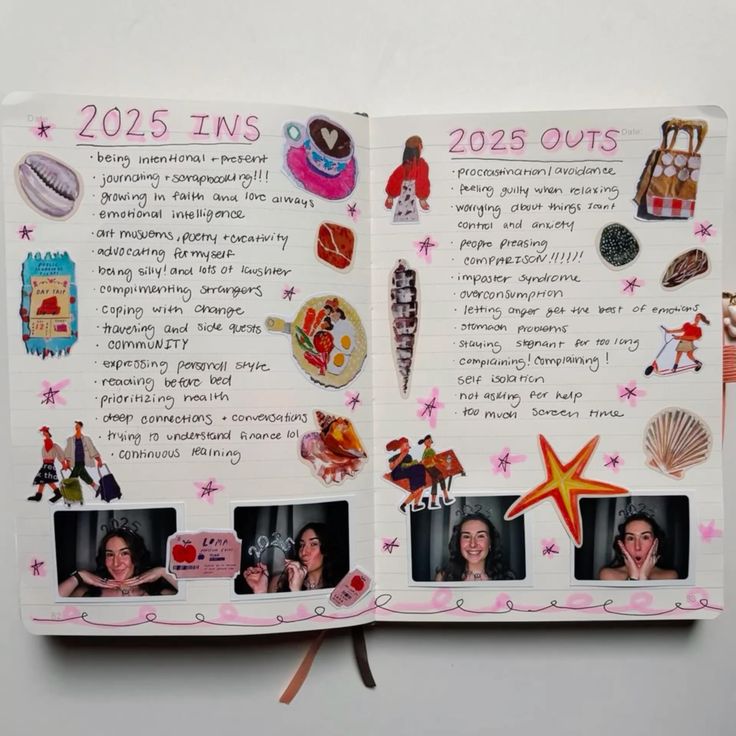 Date:
2025 INS
· being intentional + present
· journaling + scrapbooking!!!
growing in faith and love always
· emotional intelligence
· art museums, poetry + creativity
· advocating for myself
· being silly! and lots of laughter
· complimenting strangers
· coping with change
· traveling and side quests
· COMMUNITY
· expressing personal style
· reading before bed
· prioritizing health
· deep connections + conversations
· trying to understand finance lol
· continuous learning
DAY TRIP
12
LOMA
2025
82
2025 OUTS
Date:
· procrastination/avoidance
· feeling guilty when relaxing
· worrying about things I cant
control and anxiety
· people pleasing
· COMPARISON!!!!!!
· imposter syndrome
· overconsumption
· letting anger get the best of emotions
· stomach problems
· staying stagnant for too long
· complaining! complaining!
self isolation
· not asking for help
· too much screen time
2025
2025
83